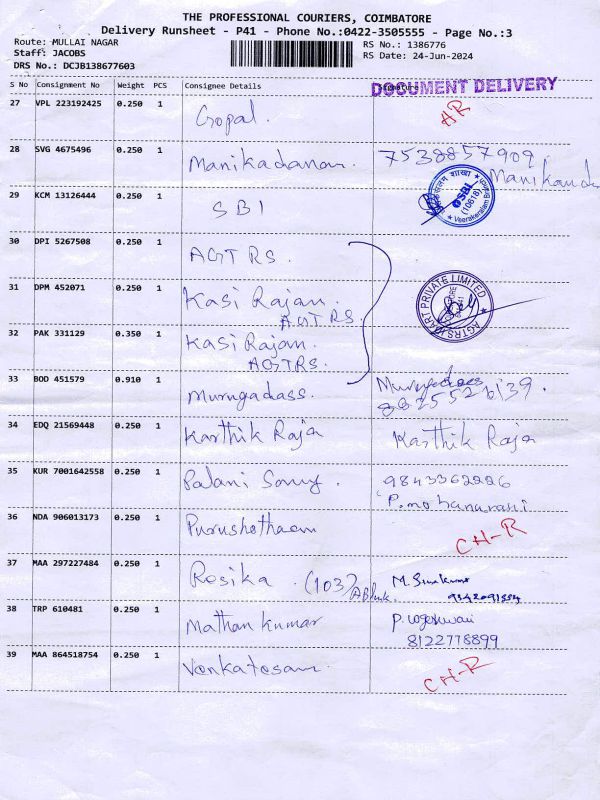 THE PROFESSIONAL COURIERS, COIMBATORE
Delivery Runsheet - P41 - Phone No.:0422-3505555 - Page No.:3
Route: MULLAI NAGAR
Staff: JACOBS
DRS No.: DCJB138677603
RS No.: 1386776
RS Date: 24-Jun-2024
DOCUMENT DELIVERY
S No Consignment No Weight PCS Consignee Details Signature
27 VPL 223192425 0.250 1 Gopal. AR
28 SVG 4675496 0.250 1 Manikadanan. 7538857909
Manikanda
29 KCM 13126444 0.250 1 SBI
SBI
(10618)
Veerakeralam
30 DPI 5267508 0.250 1 AGTRS.
31 DPM 452071 0.250 1 Kasi Rajan.
AGTRS.
AGTRSMART PRIVATE LIMITED
32 PAK 331129 0.350 1 Kasi Rajan.
AGTRS.
33 BOD 451579 0.910 1 Murugadass. Murugadoss
8825526139.
34 EDQ 21569448 0.250 1 Karthik Raja Karthik Raja
35 KUR 7001642558 0.250 1 Palani Samy. 9843362226
P.mohanarani
36 NDA 906013173 0.250 1 Purushothaem CH-R
37 MAA 297227484 0.250 1 Resika (103) A Block. M. Sivakumar
9342091554
38 TRP 610481 0.250 1 Mathan kumar P. Logeshwari
8122778899
39 MAA 864518754 0.250 1 Venkatesam. CH-R